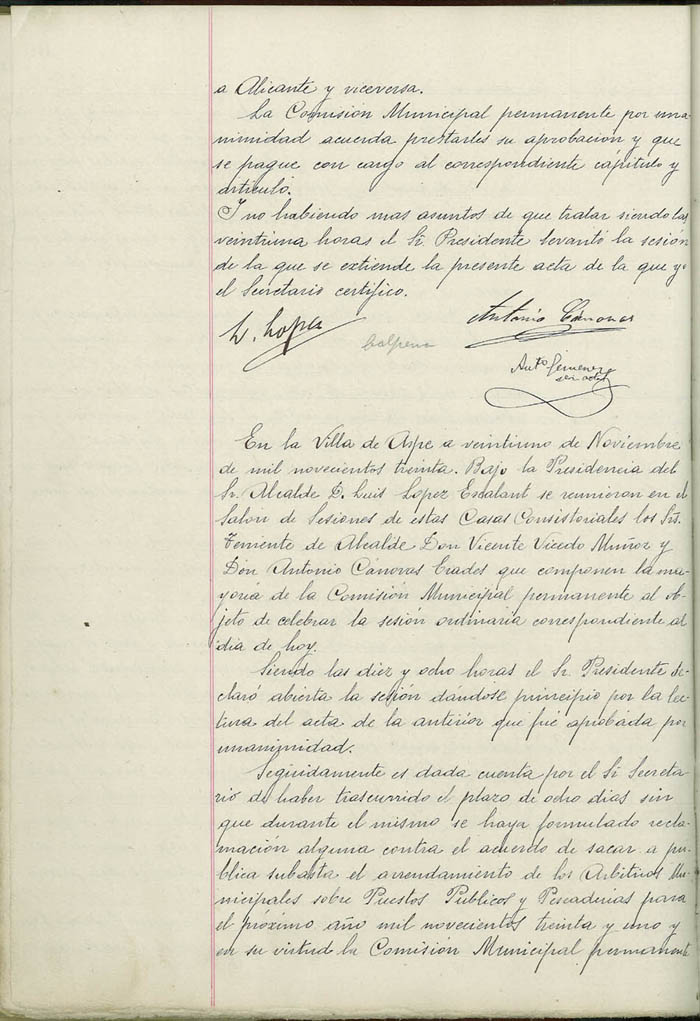 a Alicante y viceversa.
La Comisión Municipal permanente por una-
nimidad acuerda prestarles su aprobación y que
se pague con cargo al correspondiente cápitulo y
articulo.
Y no habiendo mas asuntos de que tratar siendo las
veintiuna horas el Sr. Presidente levantó la sesión
de la que se extiende la presente acta de la que yo
el Secretario certifico.
L. Lopez
Antonio Cánovas
Calpena
Antº Gimenez
En la Villa de Aspe a veintiuno de Noviembre
de mil novecientos treinta. Bajo la Presidencia del
Sr. Alcalde D. Luis Lopez Esdalant se reunieron en el
Salón de Sesiones de estas Casas Consistoriales los Srs.
Teniente de Alcalde Don Vicente Vicedo Muñoz y
Don Antonio Cánovas Erades que componen la ma-
yoria de la Comisión Municipal permanente al ob-
jeto de celebrar la sesión ordinaria correspondiente al
dia de hoy.
Siendo las diez y ocho horas el Sr. Presidente de-
claró abierta la sesión dándose principio por la lec-
tura del acta de la anterior que fué aprobada por
unanimidad.
Seguidamente es dada cuenta por el Sr. Secreta-
rio de haber trascurrido el plazo de ocho dias sin
que durante el mismo se haya formulado recla-
mación alguna contra el acuerdo de sacar a pu-
blica subasta el arrendamiento de los Arbitrios Mu-
nicipales sobre Puestos Publicos y Pescaderias para
el próximo año mil novecientos treinta y uno y
en su virtud la Comisión Municipal permanente